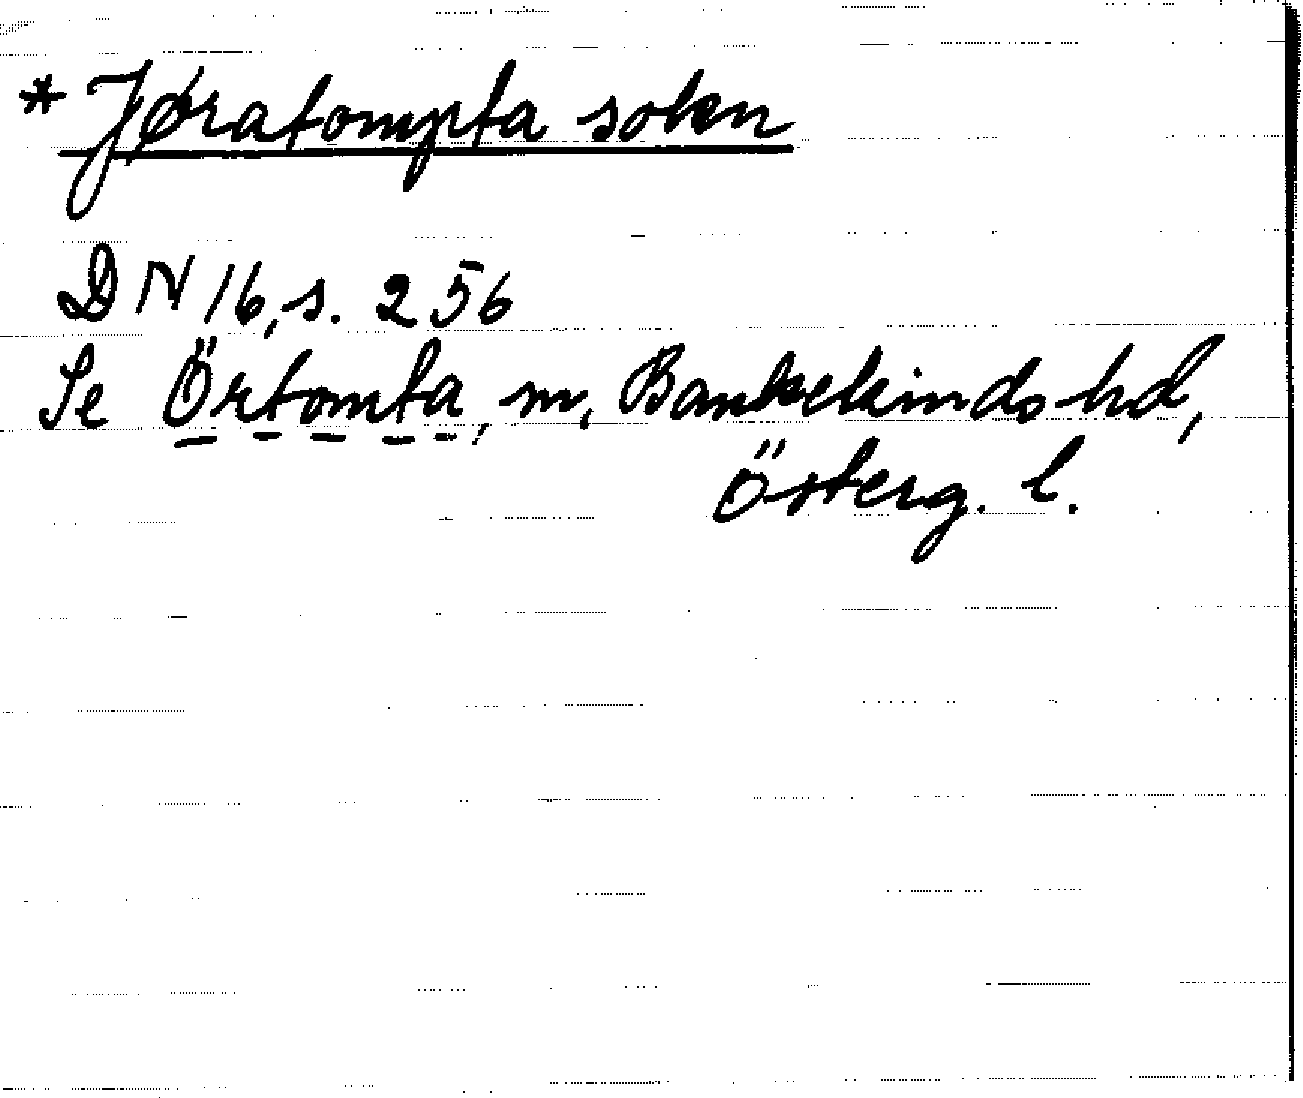 * Jøratompta sokn
DN 16, s. 256
Se Örtomta, sn, Bankekinds hd,
Österg. l.